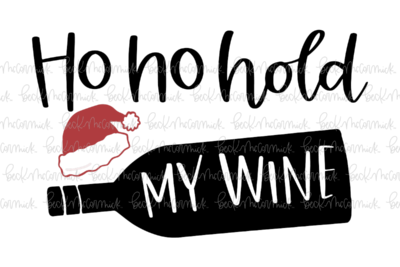 Ho ho hold
MY WINE